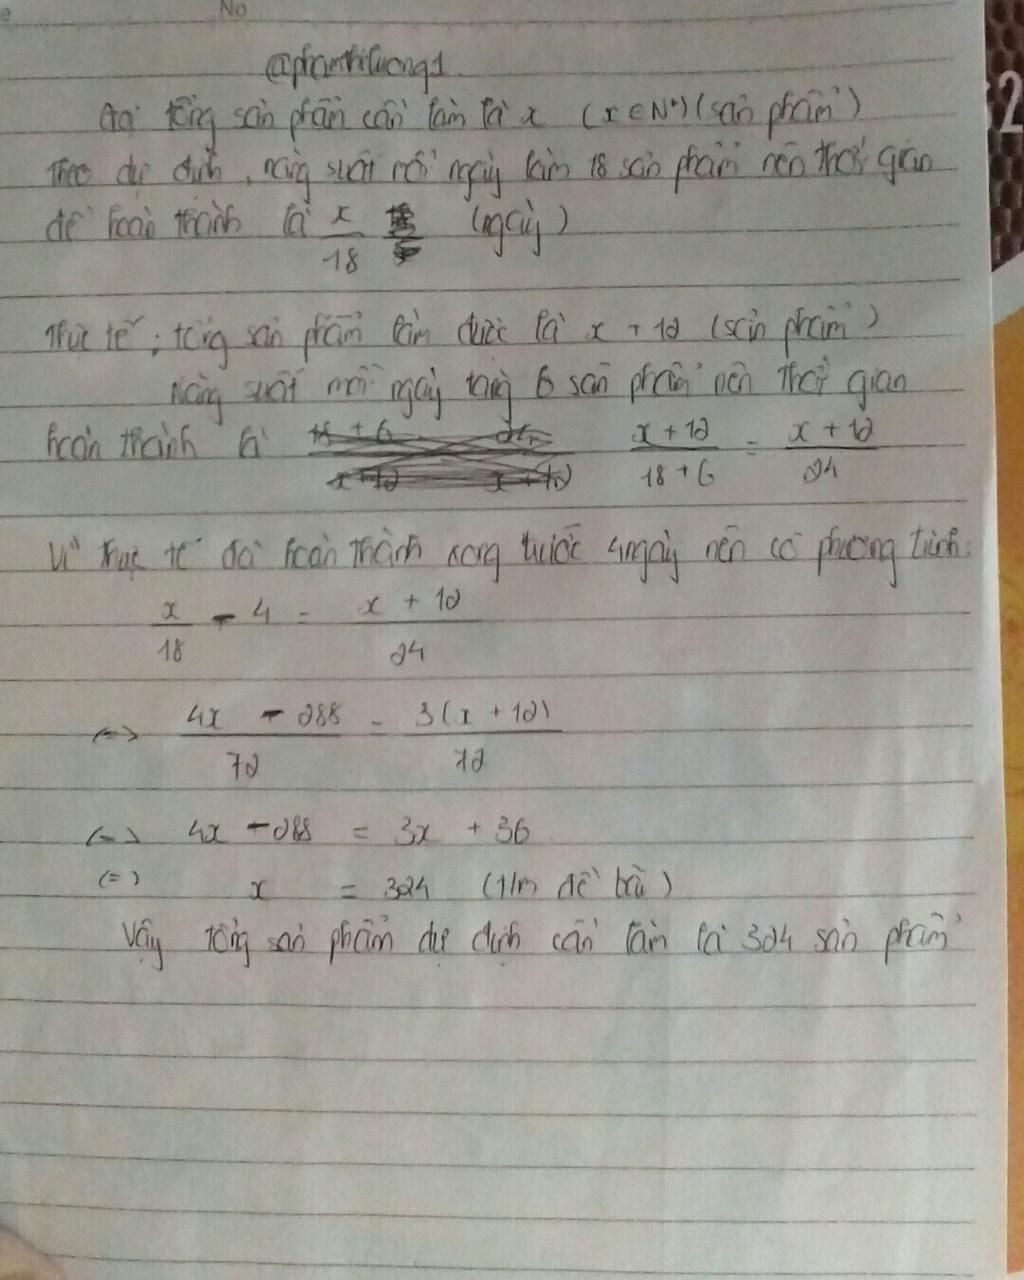 No
@phamthiluong1
Gọi tổng sản phẩm cần làm là x (x ∈ N*) (sản phẩm)
Theo dự định, năng suất mỗi ngày làm 18 sản phẩm nên thời gian
để hoàn thành là x/18 (ngày)
Thực tế; tổng sản phẩm làm được là x + 12 (sản phẩm)
Năng suất mỗi ngày tăng 6 sản phẩm nên thời gian
hoàn thành là (x + 12)/(18 + 6) = (x + 12)/24
Vì thực tế đã hoàn thành xong trước 4 ngày nên có phương trình:
x/18 - 4 = (x + 12)/24
<=> (4x - 288)/72 = 3(x + 12)/72
<=> 4x - 288 = 3x + 36
(=) x = 324 (T/m đề bài)
Vậy tổng sản phẩm dự định cần làm là 324 sản phẩm
2